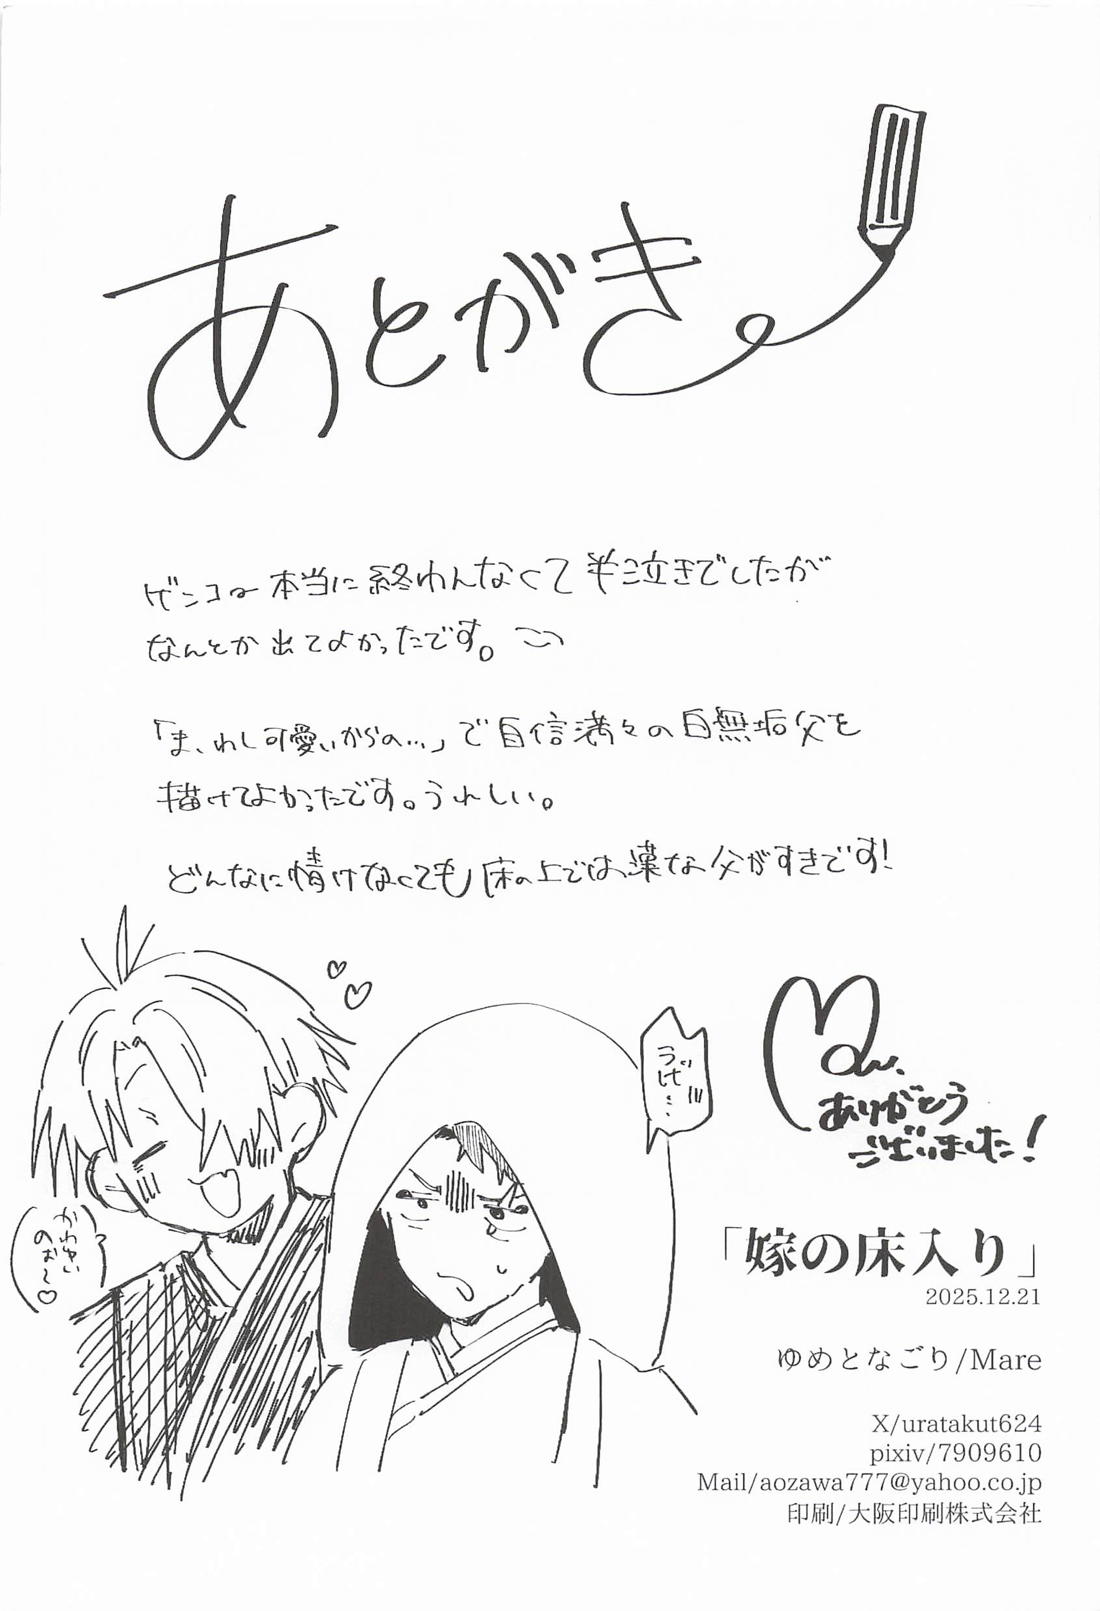 あとがき
ゲンコー本当に終わんなくて半泣きでしたが
なんとか出てよかったです。
「ま、わし可愛いからの…」で自信満々の白無垢父を
描けてよかったです。うれしい。
どんなに情けなくても床の上では漢な父がすきです!
かわゆい
のぉ〜♡
うげ…
ありがとう
ございました!
「嫁の床入り」
2025.12.21
ゆめとなごり/Mare
X/uratakut624
pixiv/7909610
Mail/aozawa777@yahoo.co.jp
印刷/大阪印刷株式会社